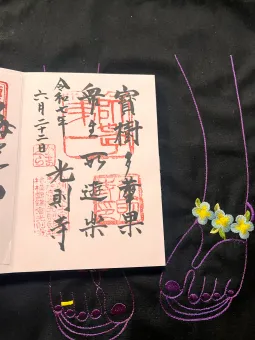 寳樹多華果
衆生所遊樂
令和七年
六月二十二日
光則寺